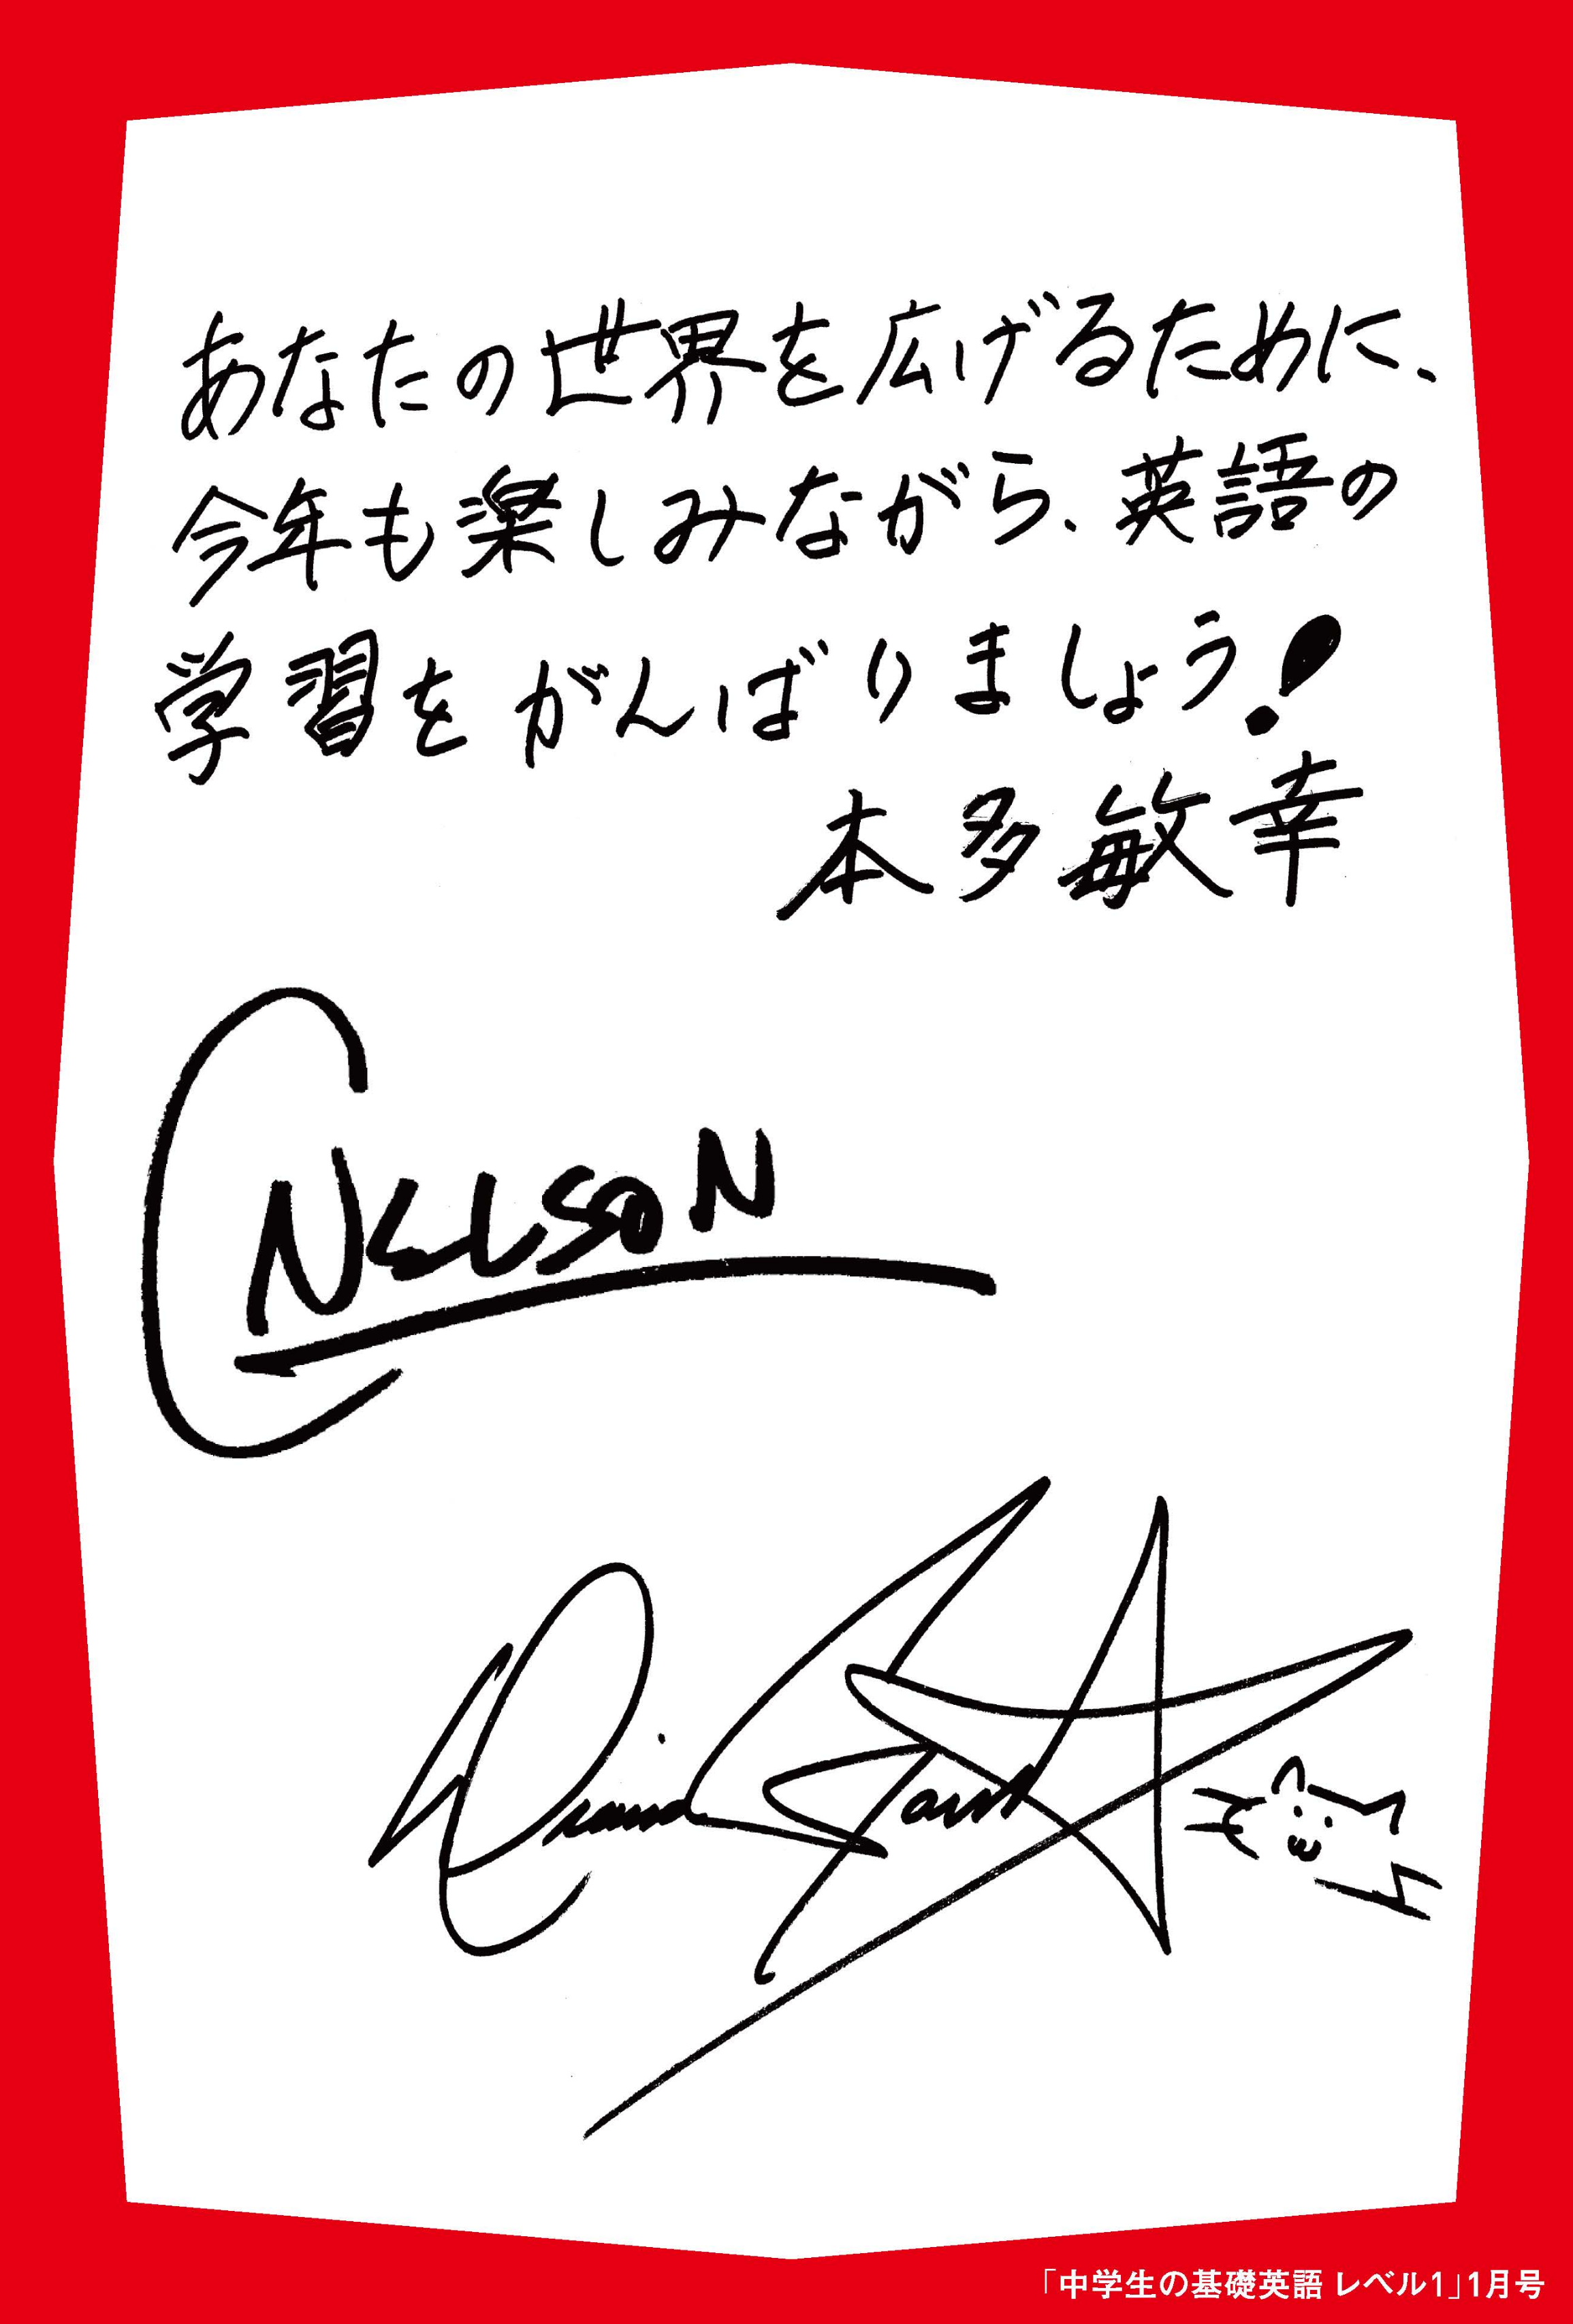 あなたの世界を広げるために、
今年も楽しみながら、英語の
学習をがんばりましょう!
本多敏幸
C NELSON
「中学生の基礎英語 レベル1」1月号